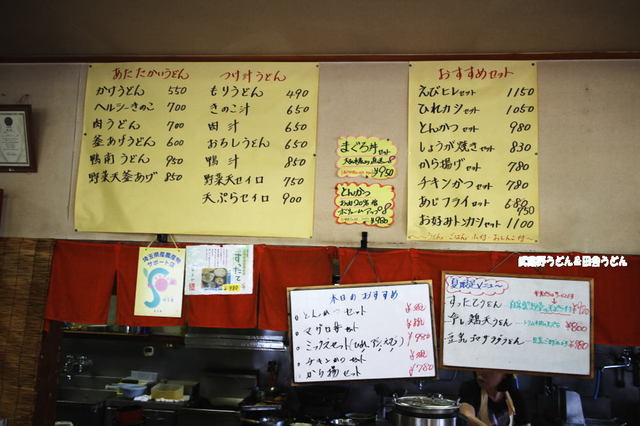 あたたかいうどん
かけうどん 550
ヘルシーきのこ 700
肉うどん 700
釜あげうどん 600
鴨南うどん 950
野菜天釜あげ 850
つけ汁うどん
もりうどん 490
きのこ汁 650
肉汁 650
おろしうどん 650
鴨汁 850
野菜天セイロ 750
天ぷらセイロ 900
まぐろ丼セット
¥950
とんかつ
ボリュームアップ
980
おすすめセット
えびヒレセット 1150
ひれカツセット 1050
とんかつセット 980
しょうが焼きセット 830
から揚げセット 780
チキンかつセット 780
あじフライセット 680
950
お好みトンカツセット 1100
埼玉県産農産物
サポート店
すったて
本日のおすすめ
とんかつセット
マグロ丼セット
ミックスセット
チキンカツセット
から揚セット ¥780
夏限定メニュー
すったてうどん
冷し鶏天うどん ¥800
豆乳ゴマダレうどん ¥980
武蔵野うどん&田舎うどん